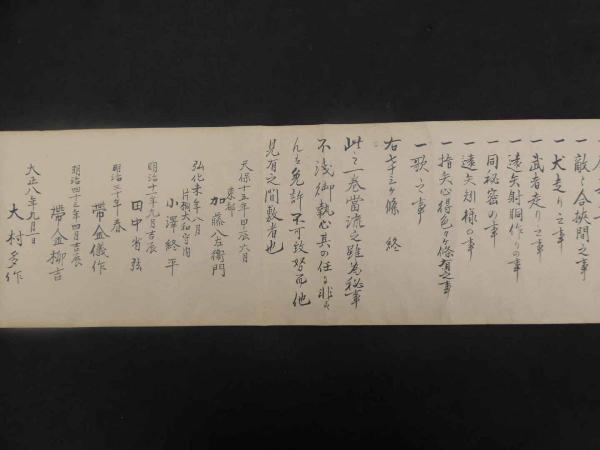 一敵ニ合挾間之事
一犬走り之事
一武者走り之事
一遠矢射胴作りの事
一同秘密の事
一遠矢矧様の事
一指矢心得色々ヶ條有之事
一歌之事
右七十三ヶ條 終
此之一巻當流之雖為秘事
不浅御執心其の任る非る
んは免許不可致努而他
見有之間敷者也
天保十五年甲辰六月
東都
加藤八左衛門
弘化未年八月
片桐大和守内
小澤終平
明治十一年九月吉辰
田中省弦
明治三十年春
帶金儀作
明治四十三年四月吉辰
帶金柳吉
大正八年九月一日
大村多作